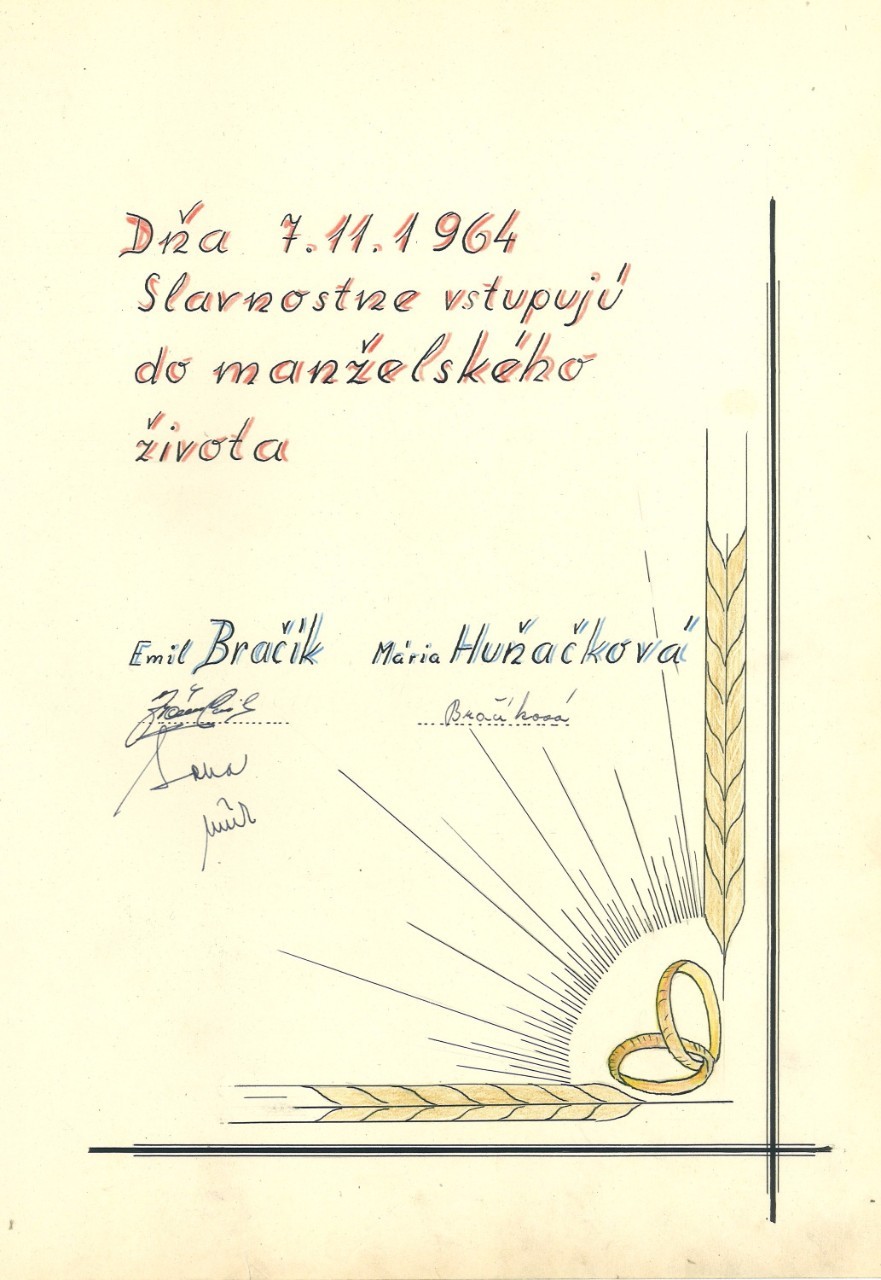 Dňa 7.11.1964
Slavnostne vstupujú
do manželského
života
Emil Bračík Mária Huňačková
Bračíková